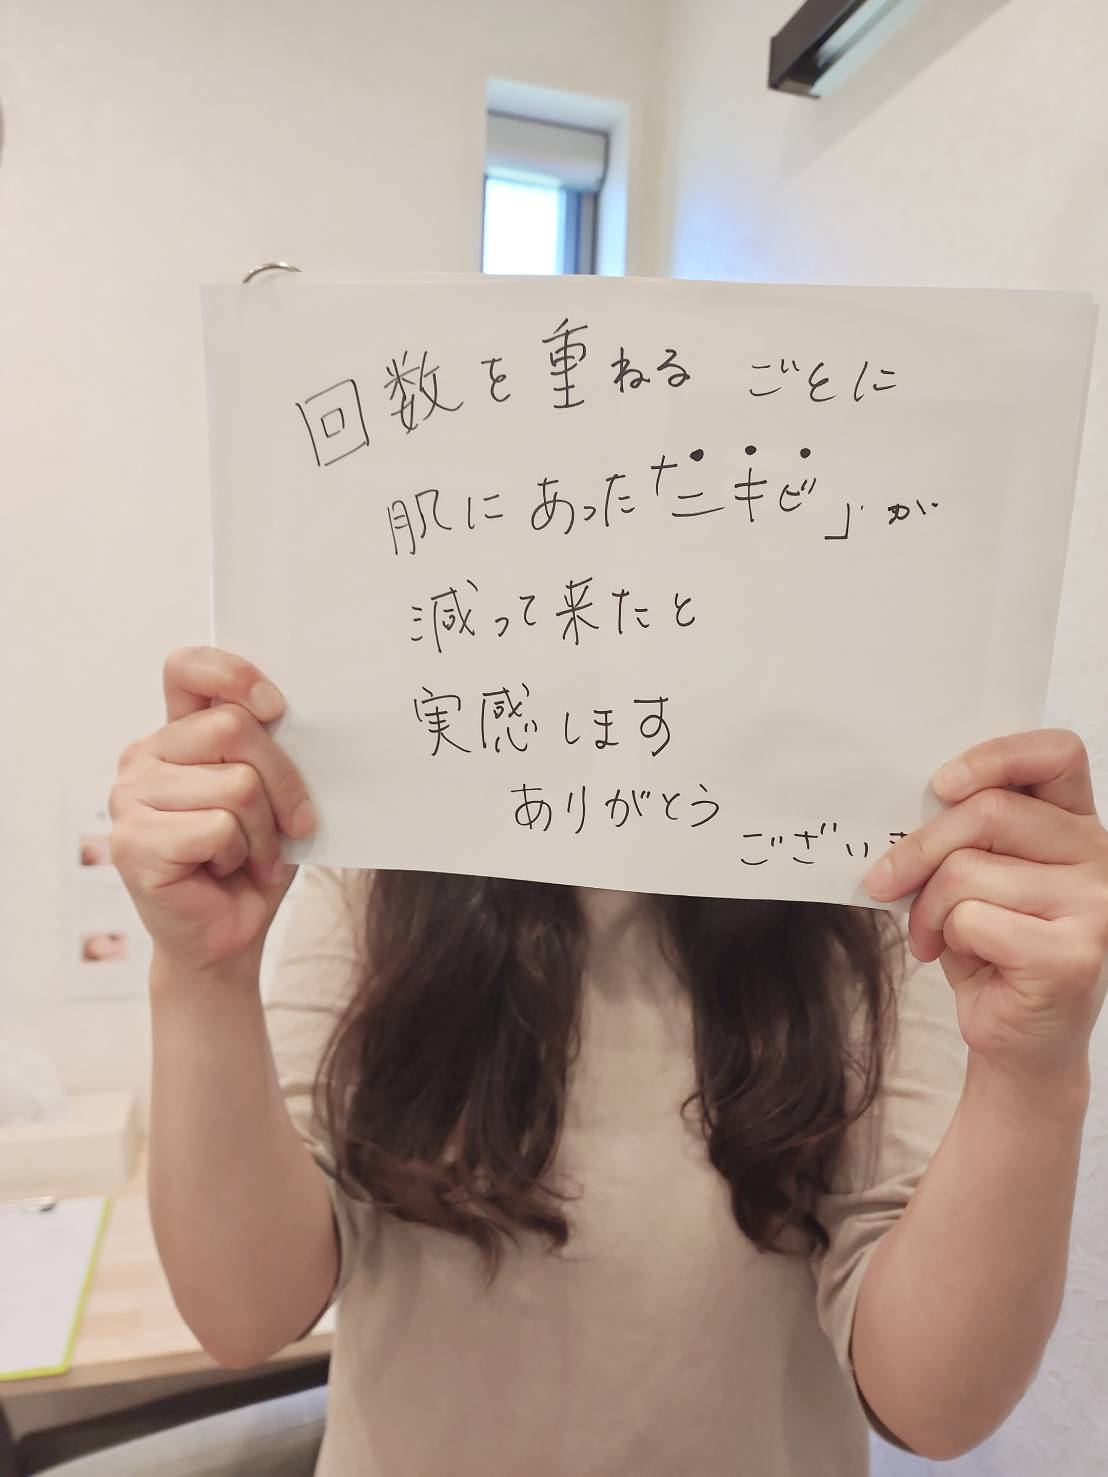 回数を重ねるごとに
肌にあった「ニキビ」が
減って来たと
実感します
ありがとう
ございま